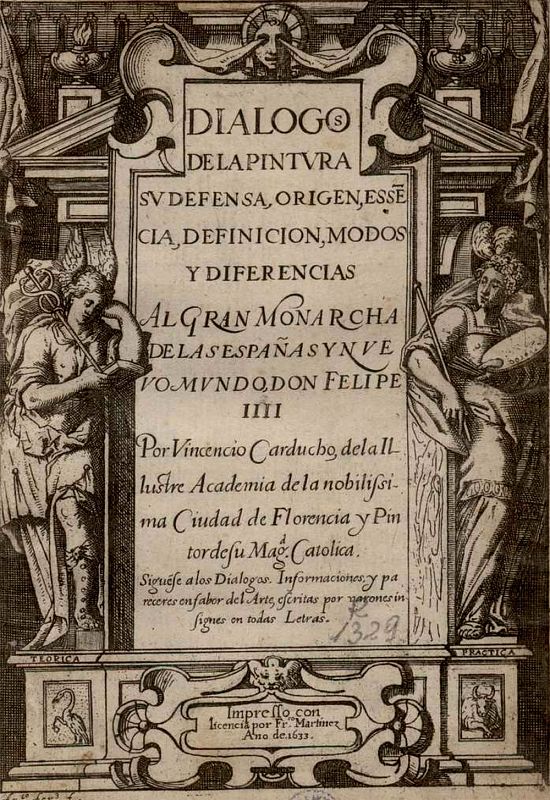 DIALOGOS
DE LA PINTVRA
SV DEFENSA, ORIGEN, ESSĒ
CIA, DEFINICION, MODOS
Y DIFERENCIAS
AL GRAN MONARCHA
DE LAS ESPAÑAS Y NVE
VO MVNDO, DON FELIPE
IIII
Por Vincencio Carducho, de la Il-
lustre Academia de la nobilissi-
ma Ciudad de Florencia y Pin
tor de su Mag.ᵈ Catolica.
Siguēse a los Dialogos, Informaciones, y pa
receres en fabor del Arte, escritas por varones in
signes en todas Letras.
R
1329
TEORICA
PRACTICA
Impresso con
licencia por Fr.ᶜᵒ Martinez
Año de 1633.